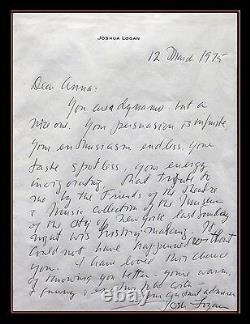 JOSHUA LOGAN
12 March 1975
Dear Anna:
You are a dynamo - but a
nice one. Your persuasion is infinite
your enthusiasm endless, your
taste spotless, your energy
invigorating. That tribute to
me by the Friends of the Theatre
& Music Collection of the Museum
of the City of New York last Sunday
night was history making. It
could not have happened without
you. I have loved this chance
of knowing you better - your warm,
funny
your constant admirer
Josh Logan